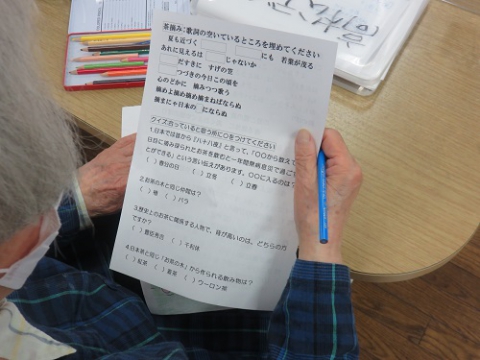 茶摘み：歌詞の空いているところを埋めてください
夏も近づく
にも 若葉が茂る
あれに見えるは じゃないか
だすきに すげの笠
つづきの今日この頃を
心のどかに 摘みつつ歌う
摘めよ摘め摘め摘まねばならぬ
摘まにゃ日本の にならぬ
クイズ合っていると思う所に○をつけてください
1.日本では昔から「八十八夜」と言って、「○○から数えて
日目に摘み採られたお茶を飲むと一年間無病息災で過ご
とができる」という言い伝えがあります。○○に入るのは？
( )春分の日 ( )立夏 ( )立春
2.お茶の木と同じ仲間は？
( )椿 ( )バラ
3.歴史上のお茶に関係する人物で、背が高いのは、どちらの方
ですか？
( )豊臣秀吉 ( )千利休
4.日本茶と同じ「お茶の木」から作られる飲み物は？
( )紅茶 ( )麦茶 ( )ウーロン茶